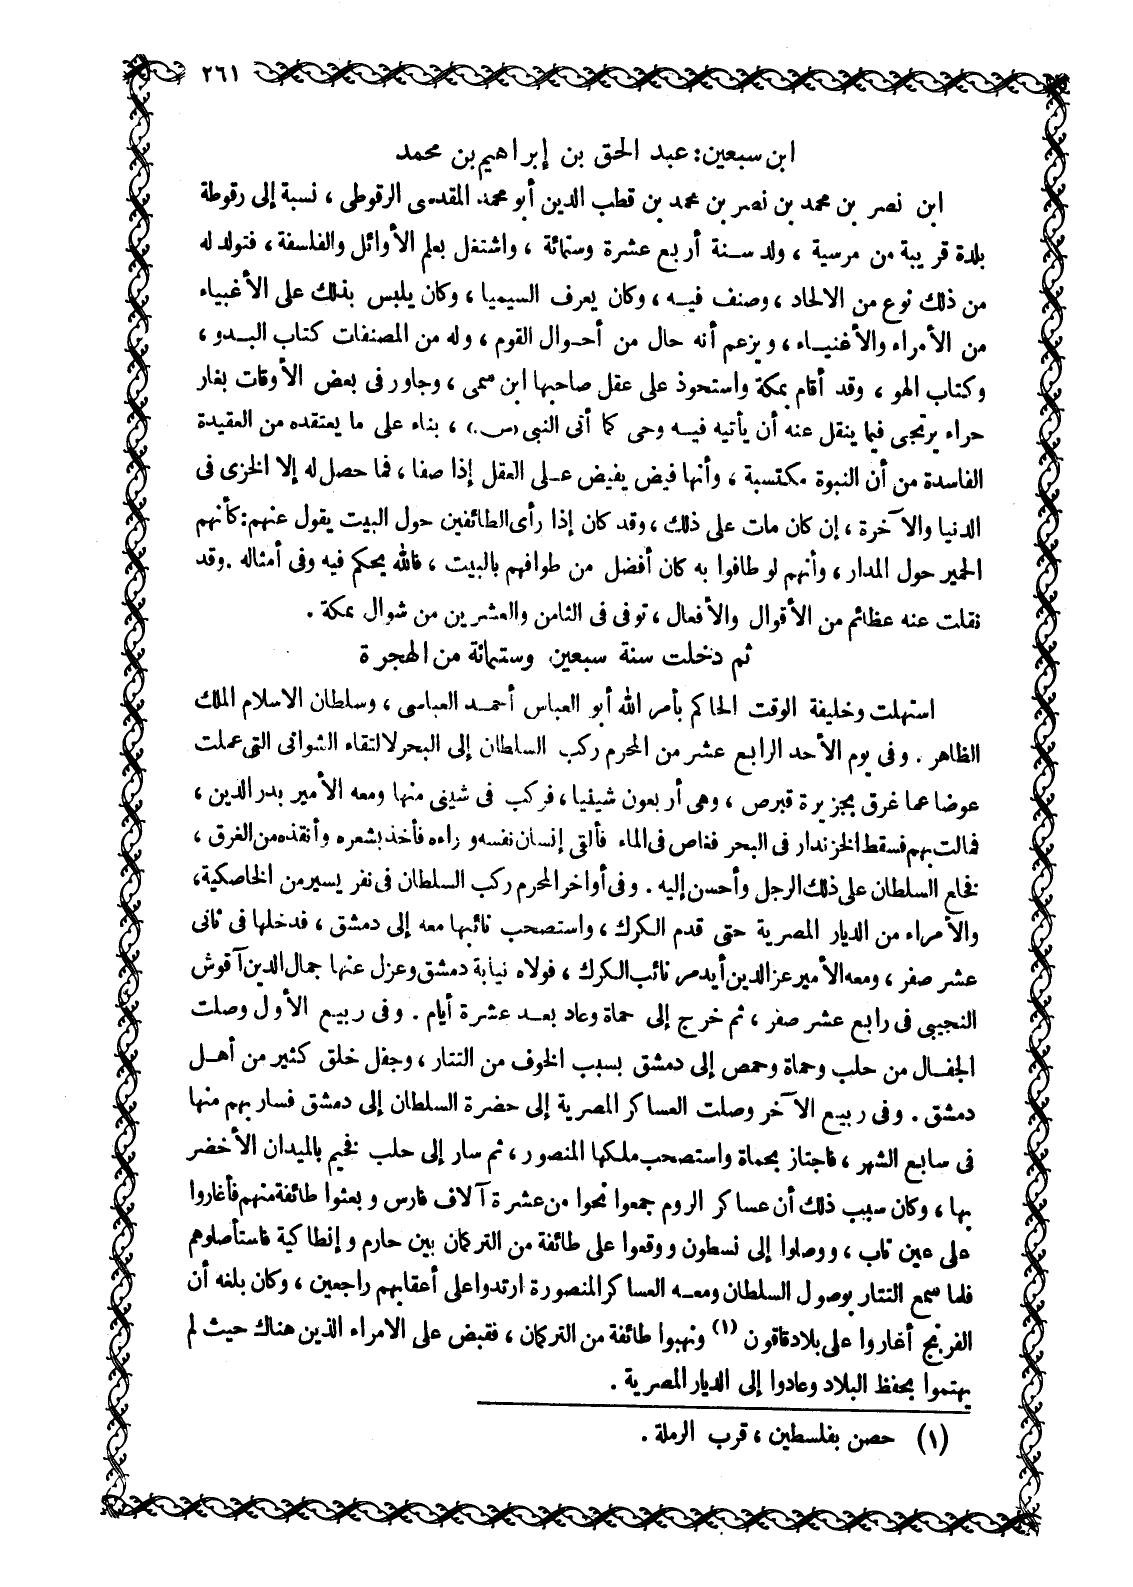 ٢٦١
ابن سبعين: عبد الحق بن إبراهيم بن محمد
ابن نصر بن محمد بن نصر بن محمد بن قطب الدين أبو محمد المقدسى الرقوطى ، نسبة إلى رقوطة
بلدة قريبة من مرسية ، ولد سنة أربع عشرة وستمائة ، واشتغل بعلم الأوائل والفلسفة ، فتولد له
من ذلك نوع من الالحاد ، وصنف فيه ، وكان يعرف السيميا ، وكان يلبس بذلك على الأغبياء
من الأمراء والأغنياء ، ويزعم أنه حال من أحوال القوم ، وله من المصنفات كتاب البدو ،
وكتاب الهو ، وقد أقام بمكة واستحوذ على عقل صاحبها ابن سمى ، وجاور فى بعض الأوقات بغار
حراء يرتجى فيما ينقل عنه أن يأتيه فيه وحى كما أتى النبى (س.) ، بناء على ما يعتقده من العقيدة
الفاسدة من أن النبوة مكتسبة ، وأنها فيض يفيض على العقل إذا صفا ، فما حصل له إلا الخزى فى
الدنيا والآخرة ، إن كان مات على ذلك ، وقد كان إذا رأى الطائفين حول البيت يقول عنهم: كأنهم
الحمير حول المدار ، وأنهم لو طافوا به كان أفضل من طوافهم بالبيت ، فالله يحكم فيه وفى أمثاله . وقد
نقلت عنه عظائم من الأقوال والأفعال ، توفى فى الثامن والعشرين من شوال بمكة .
ثم دخلت سنة سبعين وستمائة من الهجرة
استهلت وخليفة الوقت الحاكم بأمر الله أبو العباس أحمد العباسى ، وسلطان الاسلام الملك
الظاهر . وفى يوم الأحد الرابع عشر من المحرم ركب السلطان إلى البحر لالتقاء الشوانى التى عملت
عوضا عما غرق بجزيرة قبرص ، وهى أربعون شينيا ، فركب فى شينى منها ومعه الأمير بدر الدين ،
فمالت بهم فسقط الخزندار فى البحر فغاص فى الماء فألقى إنسان نفسه وراءه فأخذ بشعره وأنقذه من الغرق ،
فخلع السلطان على ذلك الرجل وأحسن إليه . وفى أواخر المحرم ركب السلطان فى نفر يسير من الخاصكية،
والأمراء من الديار المصرية حتى قدم الكرك ، واستصحب نائبها معه إلى دمشق ، فدخلها فى ثانى
عشر صفر ، ومعه الأمير عز الدين أيدمر نائب الكرك ، فولاه نيابة دمشق وعزل عنها جمال الدين آقوش
النجيبى فى رابع عشر صفر ، ثم خرج إلى حماة وعاد بعد عشرة أيام . وفى ربيع الأول وصلت
الجفال من حلب وحماة وحمص إلى دمشق بسبب الخوف من التتار ، وجفل خلق كثير من أهل
دمشق . وفى ربيع الآخر وصلت العساكر المصرية إلى حضرة السلطان إلى دمشق فسار بهم منها
فى سابع الشهر ، فاجتاز بحماة واستصحب ملكها المنصور ، ثم سار إلى حلب فخيم بالميدان الأخضر
بها ، وكان سبب ذلك أن عساكر الروم جمعوا نحوا من عشرة آلاف فارس وبعثوا طائفة منهم فأغاروا
على عين تاب ، ووصلوا إلى نسطون ووقعوا على طائفة من التركمان بين حارم وإنطاكية فاستأصلوهم
فلما سمع التتار بوصول السلطان ومعه العساكر المنصورة ارتدوا على أعقابهم راجعين ، وكان بلغه أن
الفرنج أغاروا على بلاد قاقون (١) ونهبوا طائفة من التركمان ، فقبض على الامراء الذين هناك حيث لم
يهتموا بحفظ البلاد وعادوا إلى الديار المصرية .
(١) حصن بفلسطين ، قرب الرملة .